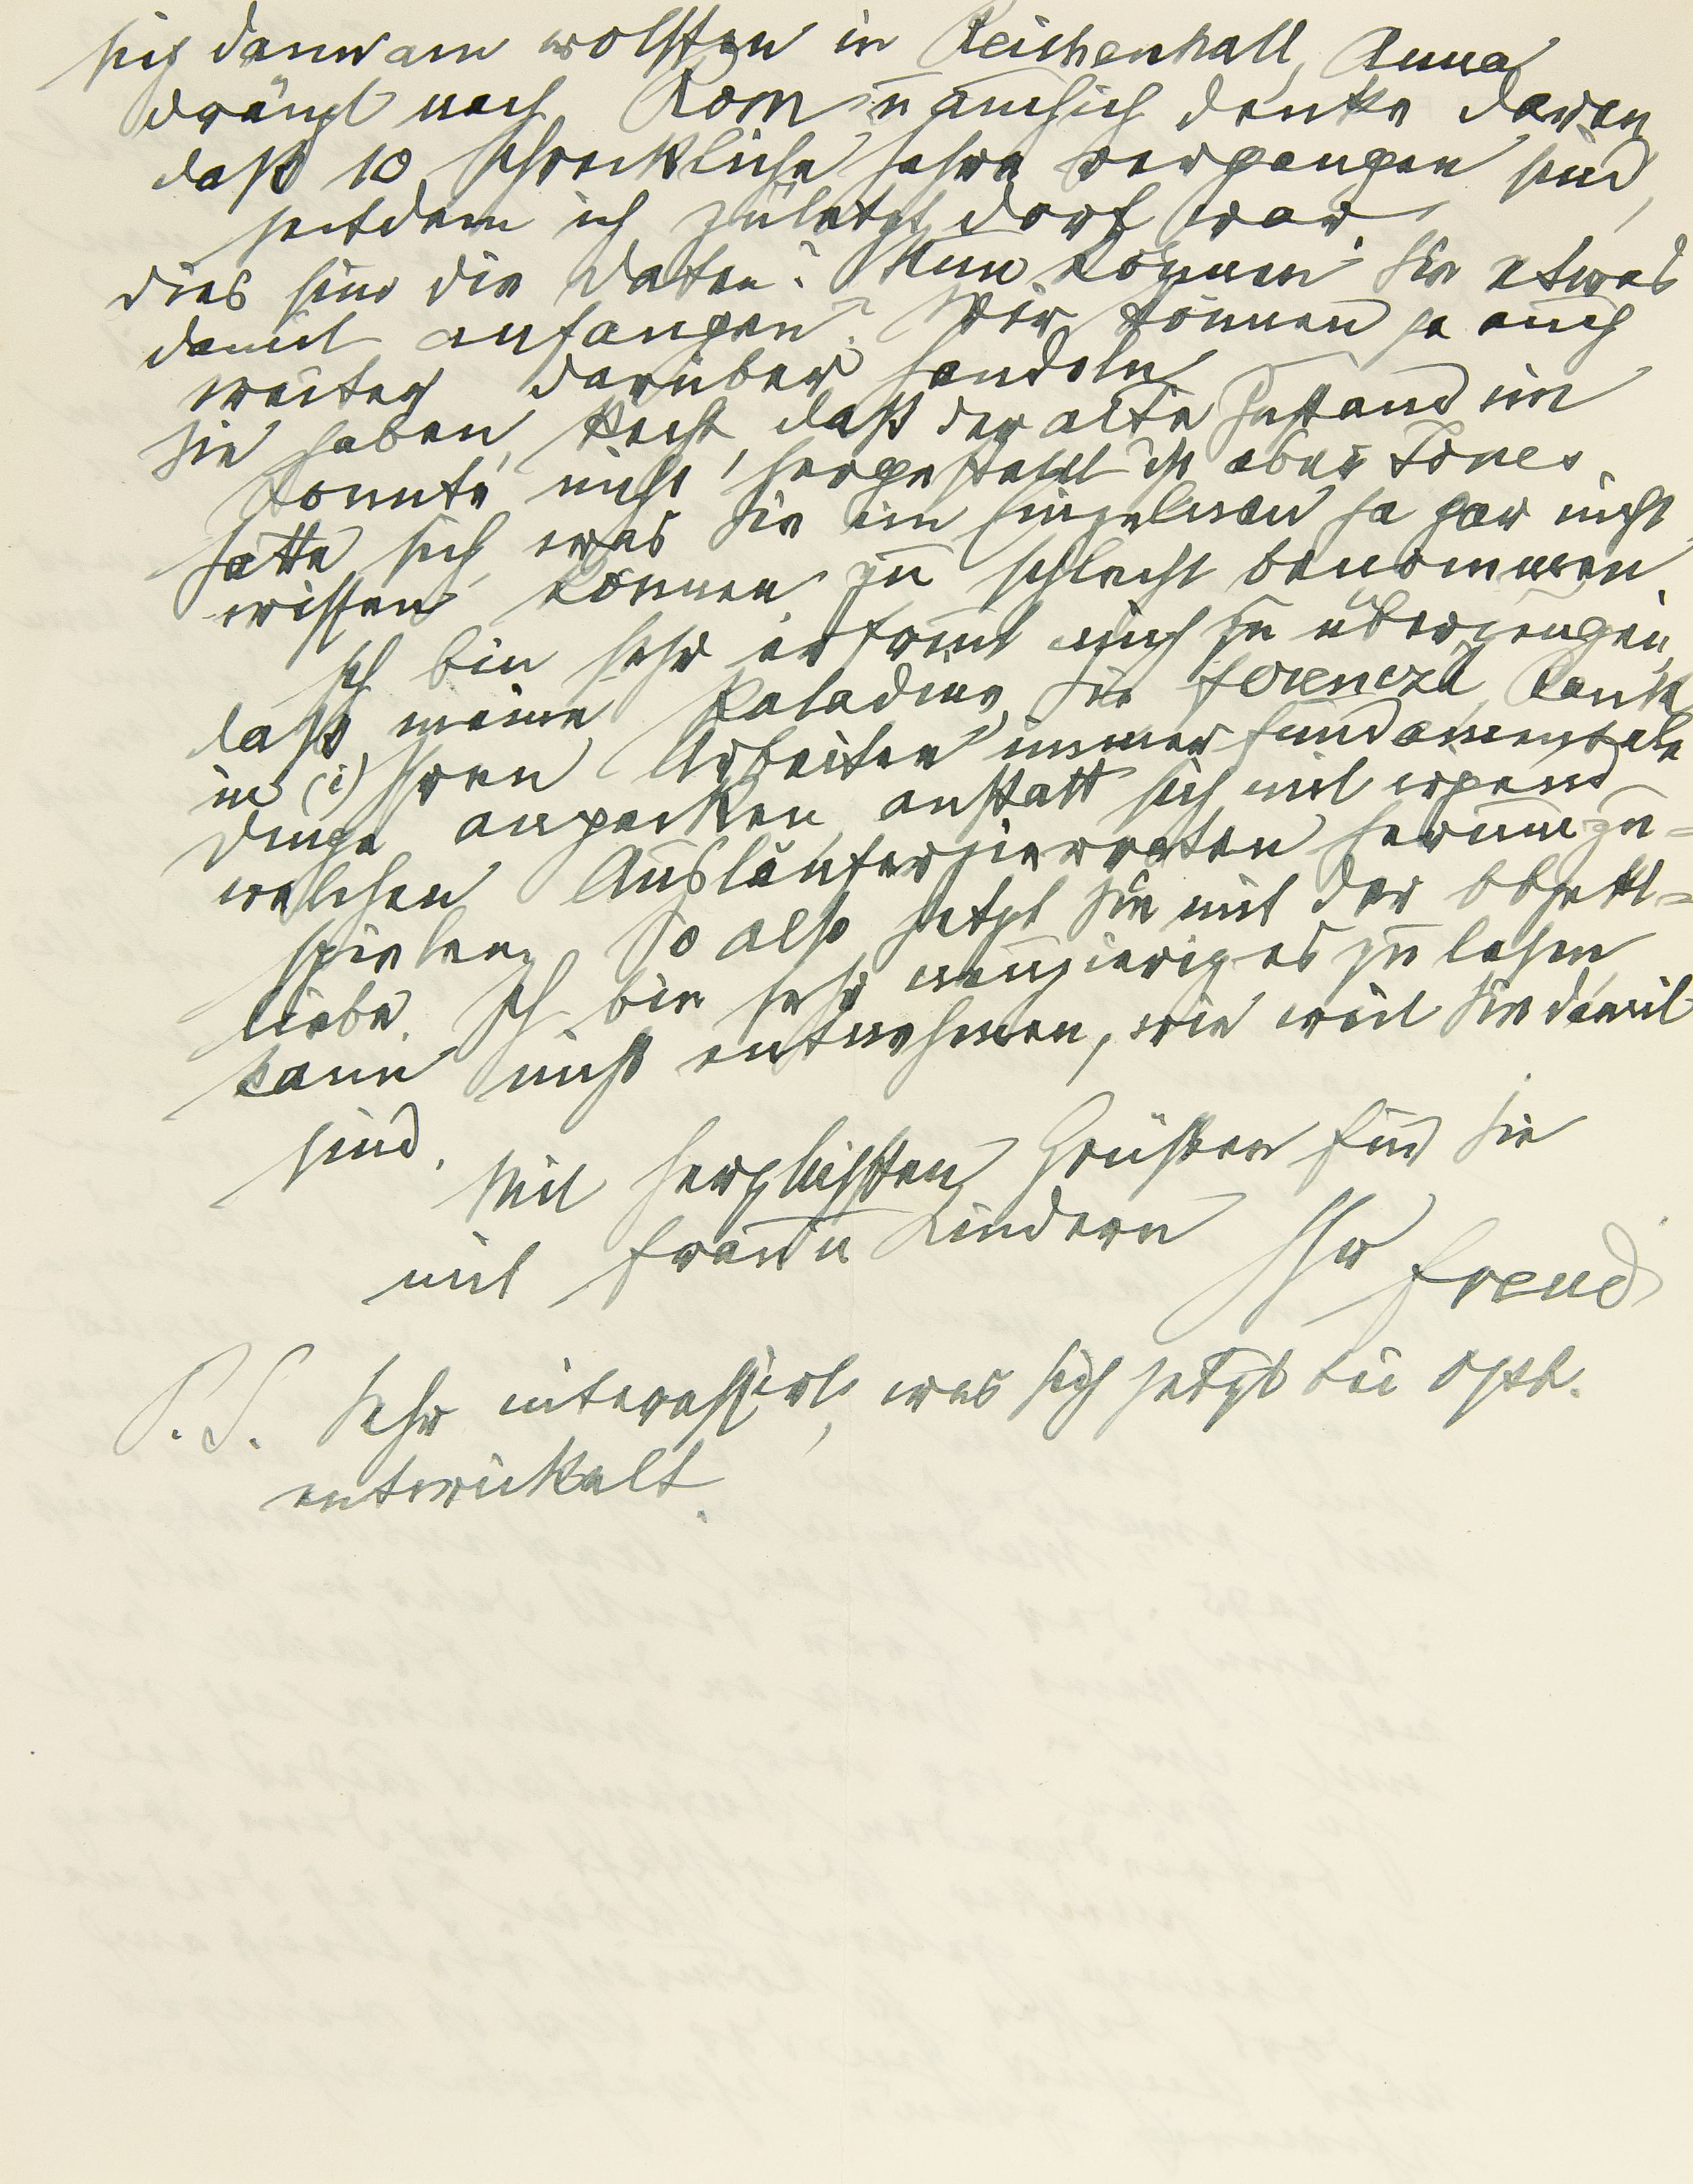 sich dann am wohlsten in Reichenhall, Anna
drängt nach Rom u auch ich denke daran
daß 10 schreckliche Jahre vergangen sind,
seitdem ich zuletzt dort war.
dies sind die Daten. Nun können Sie etwas
damit anfangen? Wir können ja auch
weiter darüber handeln.
Sie haben Recht, daß der alte Zustand im
konnte nicht hergestellt ist aber Jones
hatte sich, was Sie im Einzelnen ja gar nicht
wissen können zu schlecht benommen.
Ich bin sehr erfreut mich zu überzeugen,
daß meine Paladine, Sie Ferenczi Rank
in (i) Ihren Arbeiten immer fundamentale
Dinge anpacken anstatt sich mit irgend
welchen Ausläuferzierraten herumzu=
spielen. So also jetzt Sie mit der Objekt=
liebe. Ich bin sehr neugierig es zu lesen
kann nicht entnehmen, wie weit Sie damit
sind.
Mit herzlichsten Grüßen für Sie
mit Frau u Kindern
Ihr Freud
P.S. Sehr interessirt, was sich jetzt bei Oph.
entwickelt.